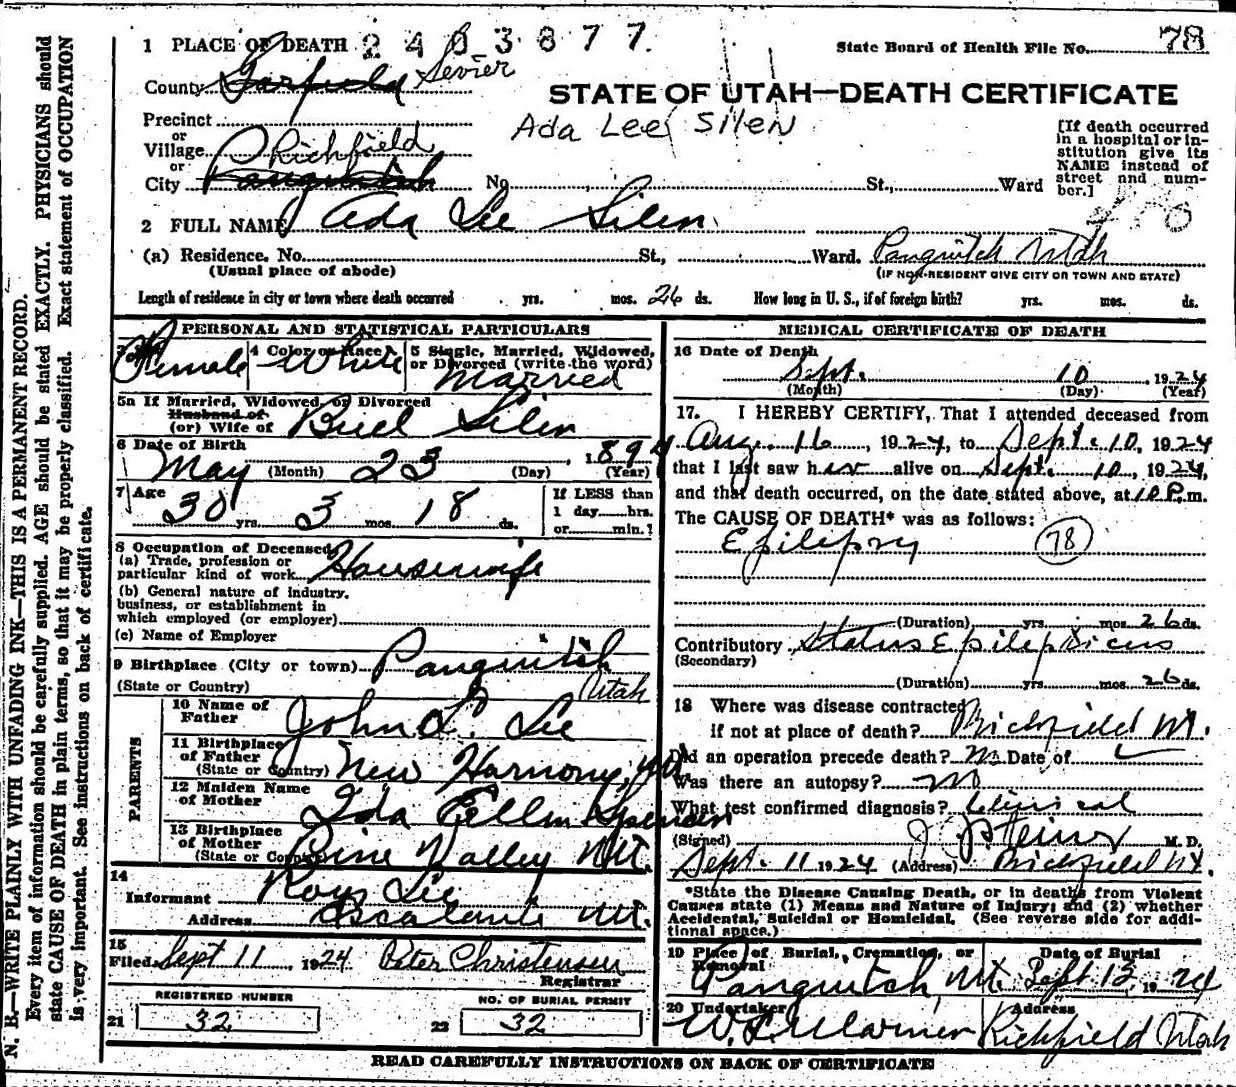 1 PLACE OF DEATH 2403877.
State Board of Health File No. 78
County Garfield Sevier
STATE OF UTAH—DEATH CERTIFICATE
Ada Lee Silen
Precinct
or
Village Richfield
or
City Panguitch No. St., Ward
[If death occurred in a hospital or institution give its NAME instead of street and number.]
2 FULL NAME Ada Lee Silen
(a) Residence. No. St., Ward. Panguitch Utah
(Usual place of abode) (IF NON-RESIDENT GIVE CITY OR TOWN AND STATE)
Length of residence in city or town where death occurred yrs. mos. 26 ds. How long in U. S., if of foreign birth? yrs. mos. ds.
PERSONAL AND STATISTICAL PARTICULARS
Female 4 Color or Race White 5 Single, Married, Widowed, or Divorced (write the word) Married
5a If Married, Widowed, or Divorced
Husband of
(or) Wife of Buel Silen
6 Date of Birth
May (Month) 23 (Day), 1894 (Year)
7 Age
30 yrs. 3 mos. 18 ds.
If LESS than
1 day......hrs.
or......min.?
8 Occupation of Deceased
(a) Trade, profession or
particular kind of work Housewife
(b) General nature of industry,
business, or establishment in
which employed (or employer)
(c) Name of Employer
9 Birthplace (City or town) Panguitch
(State or Country) Utah
PARENTS
10 Name of
Father John L. Lee
11 Birthplace
of Father
(State or Country) New Harmony, Ut.
12 Maiden Name
of Mother Ida Ellen Spencer
13 Birthplace
of Mother
(State or Country) Pine Valley Ut.
14
Informant Roy Lee
Address Escalante Ut.
15
Filed Sept 11, 1924 Peter Christensen
Registrar
REGISTERED NUMBER NO. OF BURIAL PERMIT
21 32 22 32
MEDICAL CERTIFICATE OF DEATH
16 Date of Death
Sept. 10, 1924
(Month) (Day) (Year)
17. I HEREBY CERTIFY, That I attended deceased from
Aug. 16, 1924, to Sept. 10, 1924
that I last saw her alive on Sept. 10, 1924,
and that death occurred, on the date stated above, at 10 P.m.
The CAUSE OF DEATH* was as follows:
Epilepsy 78
(Duration) yrs. mos. 26 ds.
Contributory Status Epilepticus
(Secondary)
(Duration) yrs. mos. 26 ds.
18 Where was disease contracted
if not at place of death? Richfield Ut.
Did an operation precede death? No Date of
Was there an autopsy? No
What test confirmed diagnosis? Clinical
(Signed) J. G. Steiner M. D.
Sept. 11 1924 (Address) Richfield Ut.
*State the Disease Causing Death, or in deaths from Violent
Causes state (1) Means and Nature of Injury; and (2) whether
Accidental, Suicidal or Homicidal. (See reverse side for addi-
tional space.)
19 Place of Burial, Cremation, or Removal Date of Burial
Panguitch, Ut. Sept 13, 1924
20 Undertaker Address
Richfield Utah
READ CAREFULLY INSTRUCTIONS ON BACK OF CERTIFICATE
N. B—WRITE PLAINLY WITH UNFADING INK—THIS IS A PERMANENT RECORD.
Every item of information should be carefully supplied. AGE should be stated EXACTLY. PHYSICIANS should
state CAUSE OF DEATH in plain terms, so that it may be properly classified. Exact statement of OCCUPATION
is very important. See instructions on back of certificate.